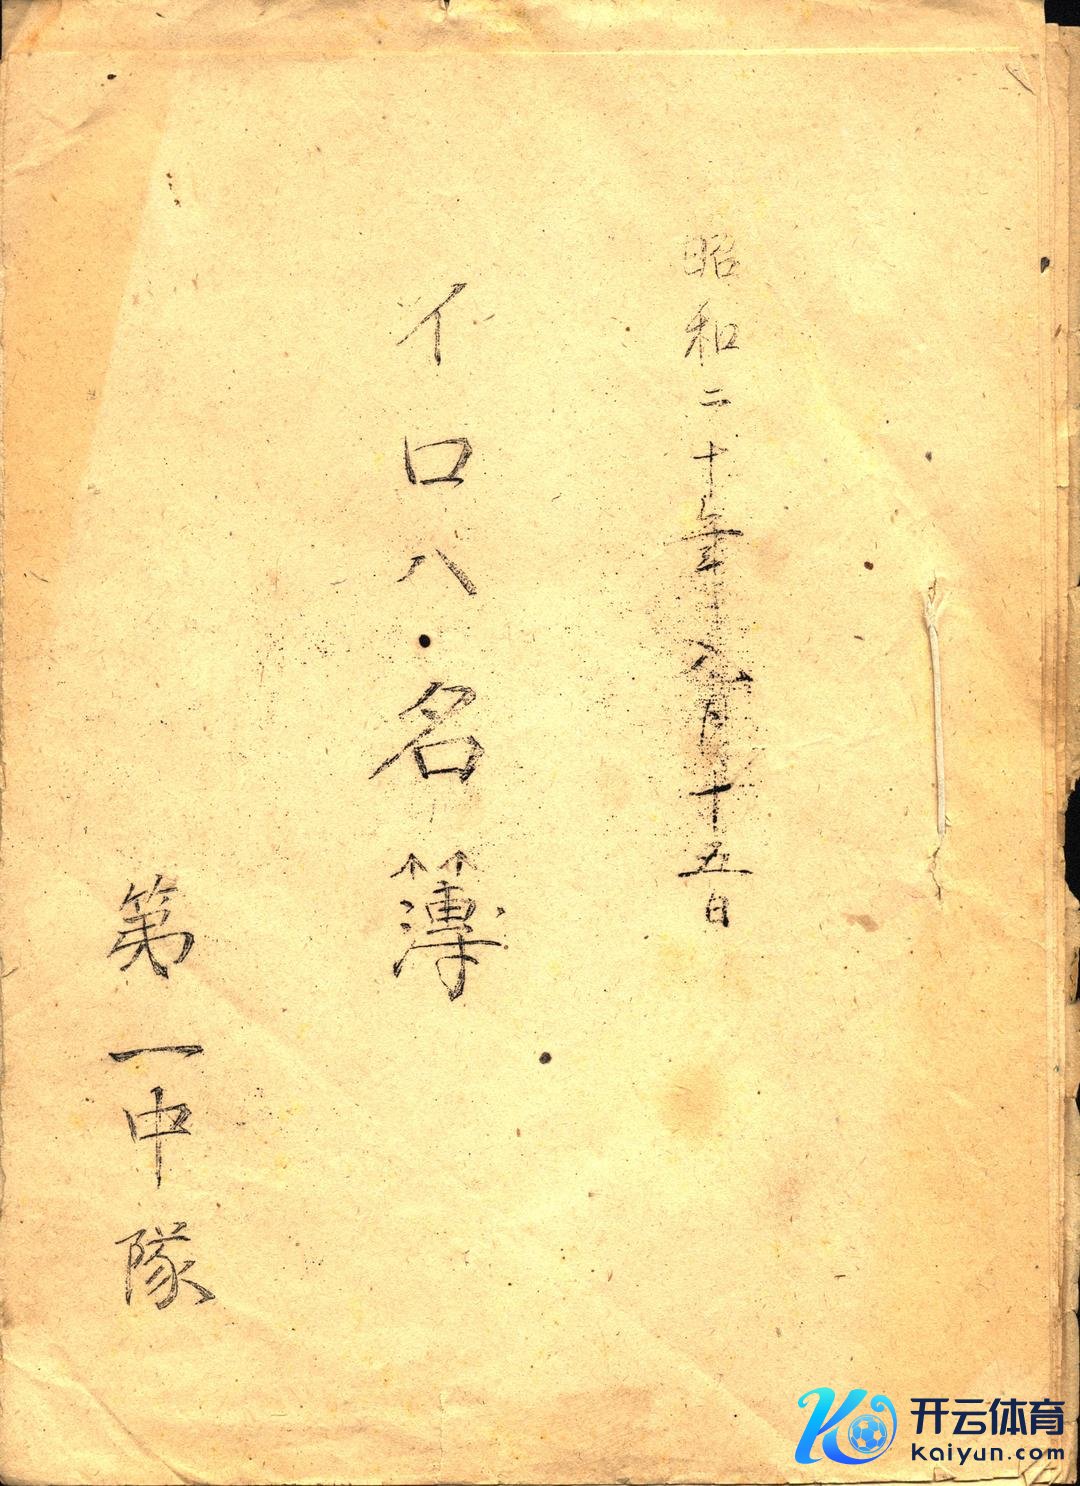 昭和二十年九月十五日
イロハ・名簿
第一中隊
开云体育
kaiyun.com